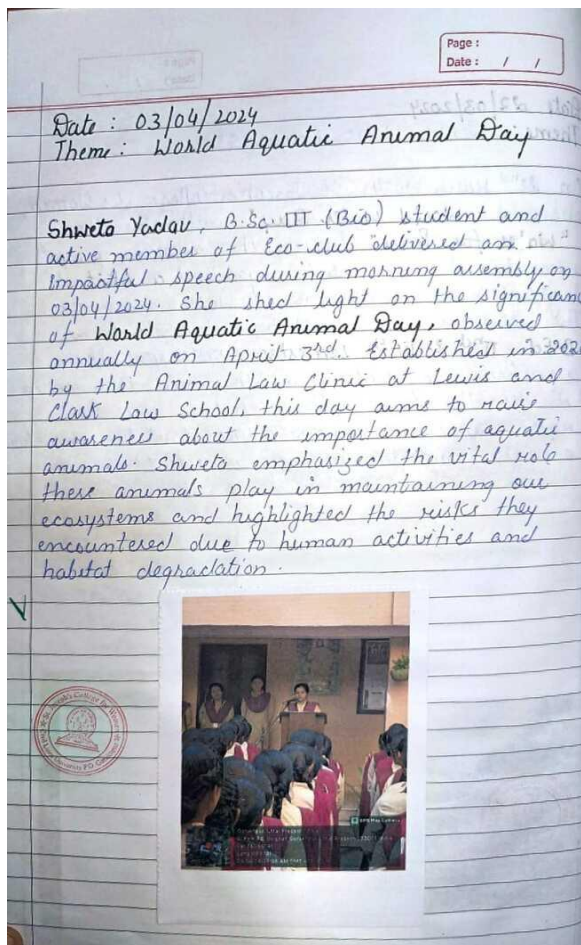 Page :
Date : / /
Date : 03/04/2024
Theme : World Aquatic Animal Day
Shweta Yadav, B.Sc. III (Bio) student and
active member of Eco-club delivered an
impactful speech during morning assembly on
03/04/2024. She shed light on the significan
of World Aquatic Animal Day, observed
annually on April 3rd. Established in 202
by the Animal Law Clinic at Lewis and
Clark Law School, this day aims to raise
awareness about the importance of aquatic
animals. Shweta emphasized the vital role
these animals play in maintaining our
ecosystems and highlighted the risks they
encountered due to human activities and
habitat degradation.
St. Joseph's College for Women
GPS Map Camera